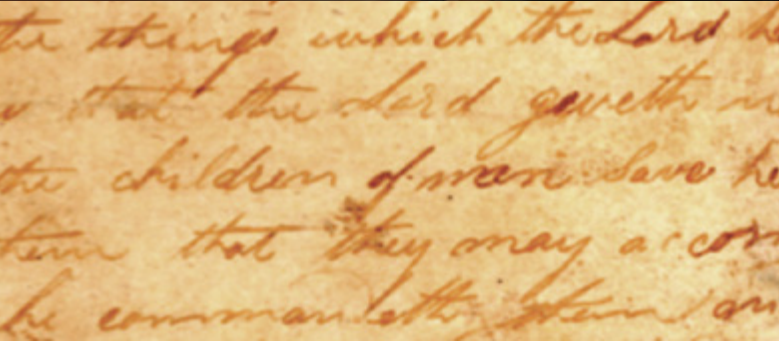 the things which the Lord h
that the Lord giveth n
the children of men save he
them that they may accom
he commandeth them an